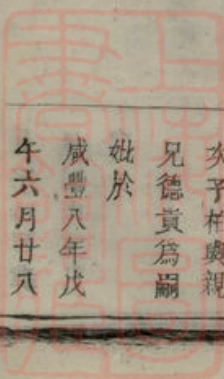 次子柏與親
兄德貢為嗣
妣於
咸豐八年戊
午六月廿八